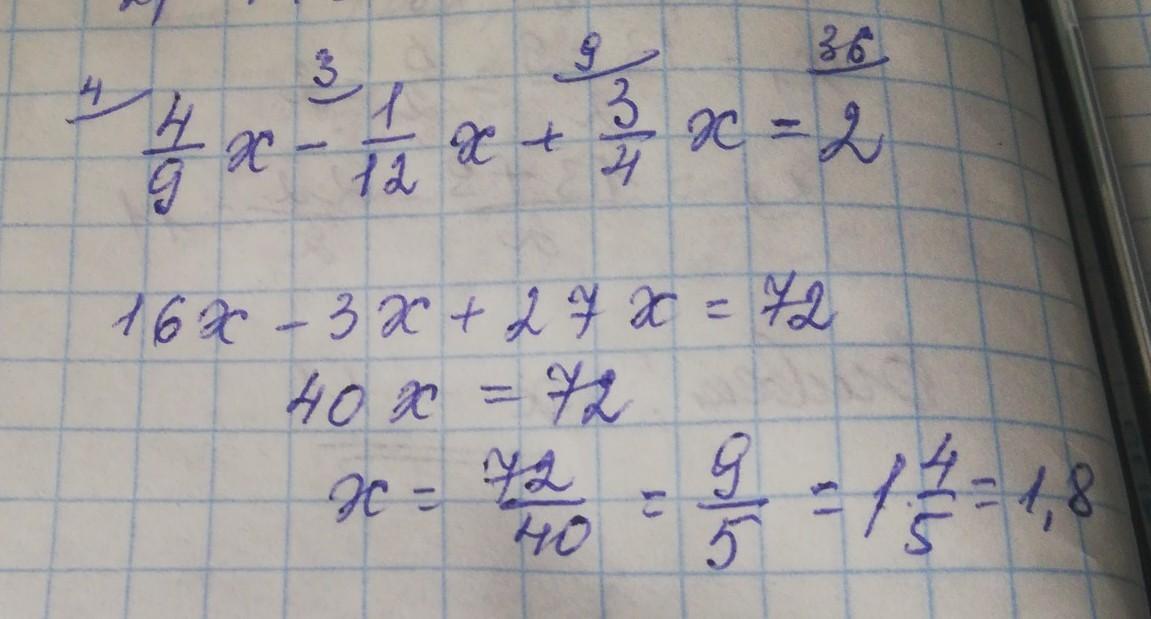 4 3 9 36
4/9 x - 1/12 x + 3/4 x = 2
16x - 3x + 27x = 72
40x = 72
x = 72/40 = 9/5 = 1 4/5 = 1,8